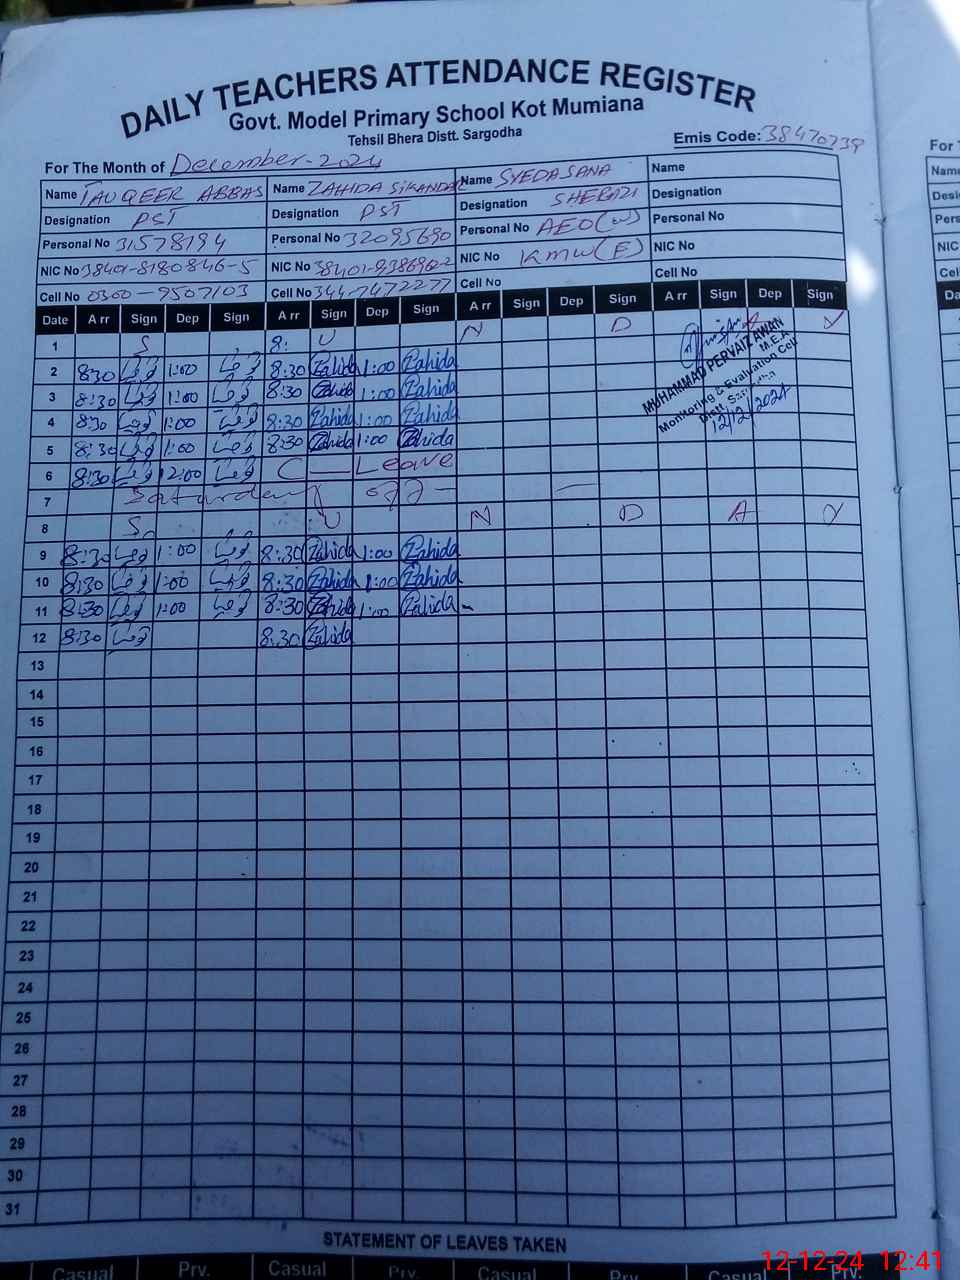 DAILY TEACHERS ATTENDANCE REGISTER
Govt. Model Primary School Kot Mumiana
Tehsil Bhera Distt. Sargodha
Emis Code: 38470739
For The Month of December-2024
Name TAUQEER ABBAS Name ZAHIDA SIKANDAR Name SYEDA SANA Name
Designation PST Designation PST Designation SHERAZI Designation
Personal No 31578194 Personal No 32095690 Personal No AEO(W) Personal No
NIC No 38401-8180846-5 NIC No NIC No KMW(E) NIC No
Cell No 0300-9507103 Cell No 344-7472277 Cell No Cell No
Date A rr Sign Dep Sign A rr Sign Dep Sign A rr Sign Dep Sign A rr Sign Dep Sign
1 S 8: U N D A Y
2 8:30 1:00 8:30 Zahida 1:00 Zahida
3 8:30 1:00 8:30 Zahida 1:00 Zahida
4 8:30 1:00 8:30 Zahida 1:00 Zahida
5 8:30 1:00 8:30 Zahida 1:00 Zahida
6 8:30 12:00 C — Leave
7 Saturday off — —
8 S U N D A Y
9 8:30 1:00 8:30 Zahida 1:00 Zahida
10 8:30 1:00 8:30 Zahida 1:00 Zahida
11 8:30 1:00 8:30 Zahida 1:00 Zahida
12 8:30 8:30 Zahida
13
14
15
16
17
18
19
20
21
22
23
24
25
26
27
28
29
30
31
MUHAMMAD PERVAIZ AWAN
M.E.A
Monitoring & Evaluation Cell
Distt. Sargodha
12/12/2024
STATEMENT OF LEAVES TAKEN
Casual Prv. Casual Prv. Casual Prv. Casual Prv.
12-12-24 12:41
For T
Name
Desig
Pers
NIC
Cel
Da